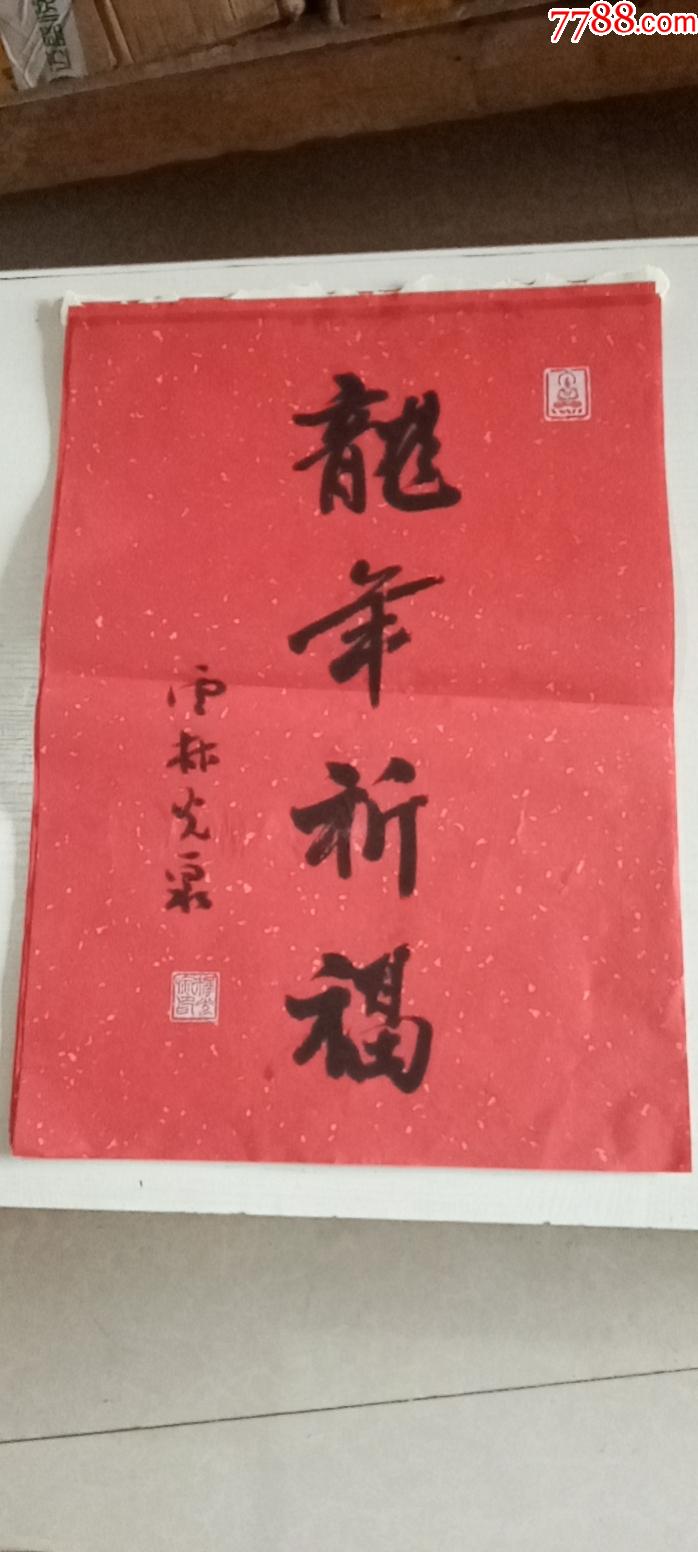 7788.com
龍年祈福
雲林光泉